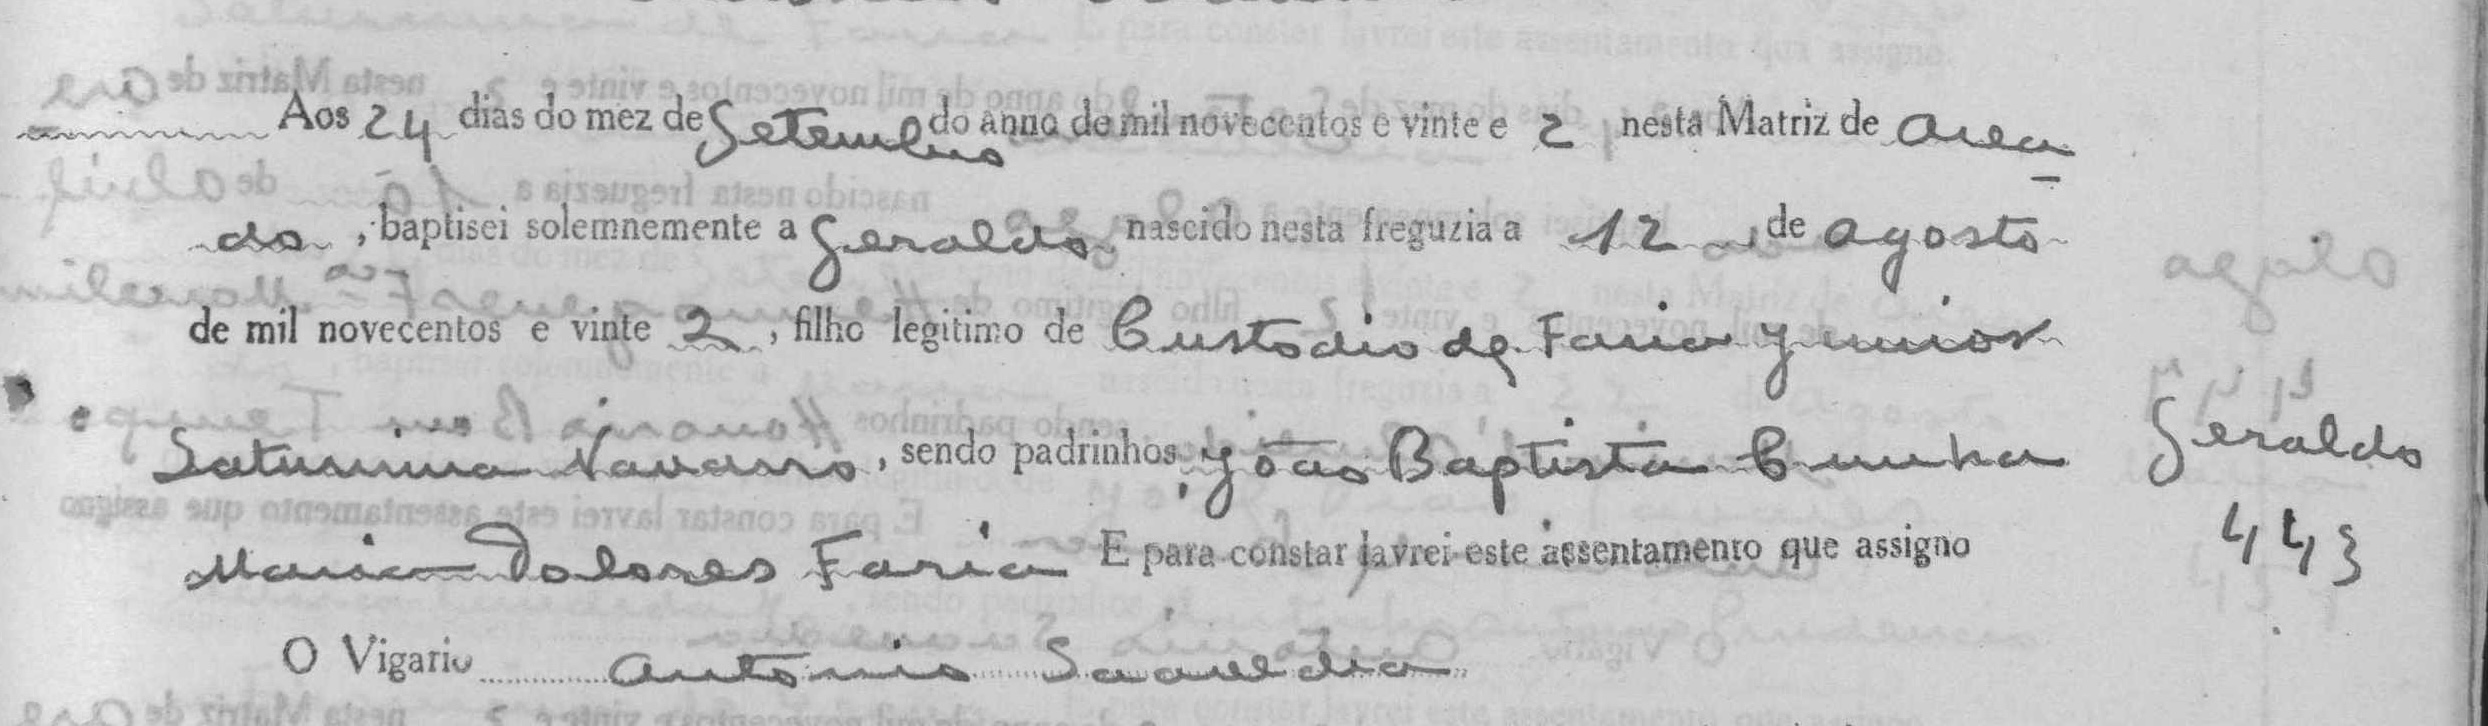 Aos 24 dias do mez de Setembro do anno de mil novecentos e vinte e 2 nesta Matriz de Area
do, baptisei solemnemente a Geraldo nascido nesta freguzia a 12 de Agosto
de mil novecentos e vinte 2, filho legitimo de Custodio de Faria Junior
e Saturnina Navarro, sendo padrinhos, João Baptista Cunha
Maria Dolores Faria E para constar lavrei este assentamento que assigno
O Vigario Antonio Saavedra
Geraldo
443